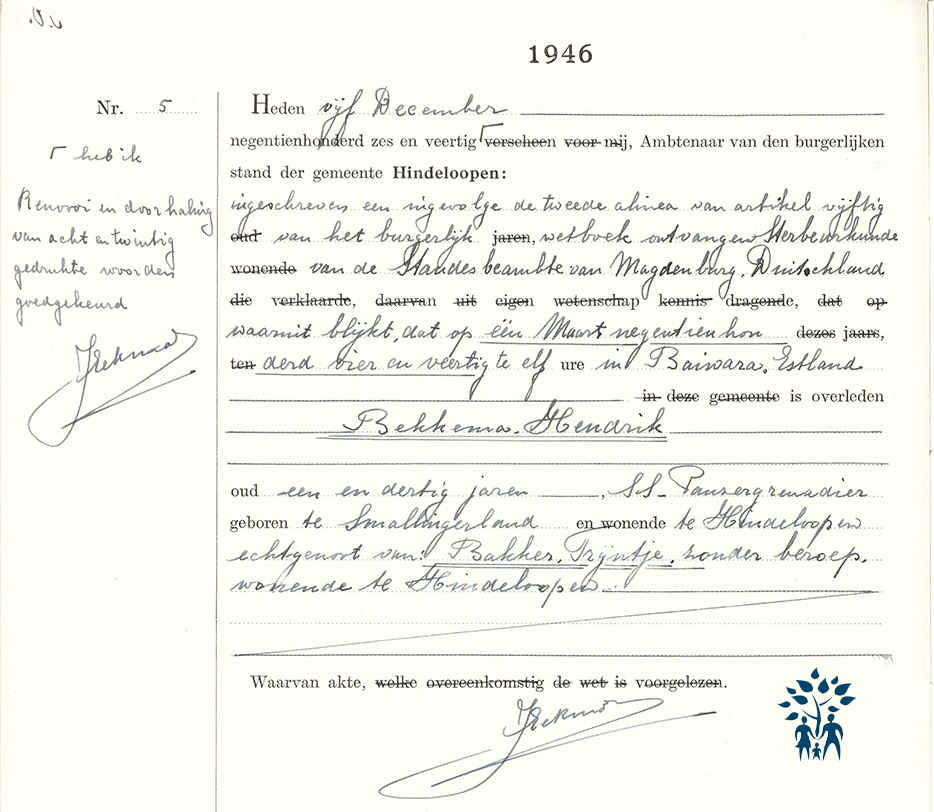 1946
Nr. 5
┌ heb ik
Renvooi en doorhaling
van acht en twintig
gedrukte woorden
goedgekeurd
Heden vijf December
negentienhonderd zes en veertig ┌ verscheen voor mij, Ambtenaar van den burgerlijken
stand der gemeente Hindeloopen:
ingeschreven een ingevolge de tweede alinea van artikel vijftig
oud van het burgerlijk jaren, wetboek ontvangen Sterbeurkunde
wonende van de Standesbeambte van Magdenburg, Duitschland
die verklaarde, daarvan uit eigen wetenschap kennis dragende, dat op
waaruit blijkt, dat op één Maart negentienhon dezes jaars,
ten derd vier en veertig te elf ure in Baiwara, Estland
in deze gemeente is overleden
Bekkema, Hendrik
oud een en dertig jaren, SS-Panzergrenadier
geboren te Smallingerland en wonende te Hindeloopen
echtgenoot van: Bakker, Trijntje, zonder beroep,
wonende te Hindeloopen.
Waarvan akte, welke overeenkomstig de wet is voorgelezen.